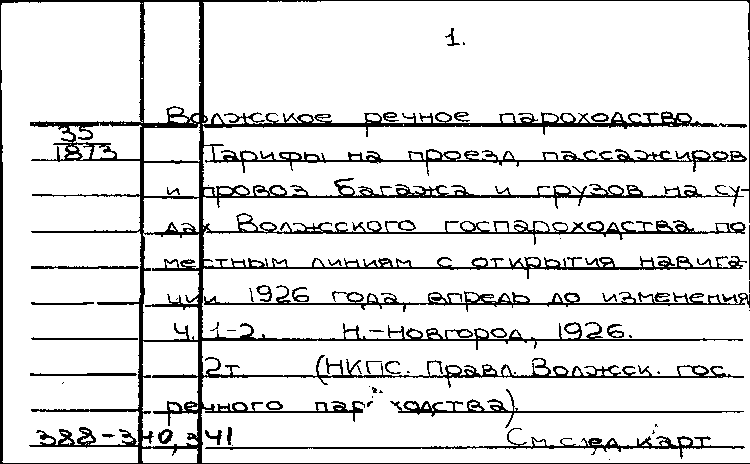 1.
Волжское речное пароходство.
35
1873
Тарифы на проезд пассажиров
и провоз багажа и грузов на су-
дах Волжского госпароходства по
местным линиям с открытия навига-
ции 1926 года, впредь до изменения
Ч. 1-2. Н.-Новгород, 1926.
2т (НКПС. Правл. Волжск. гос.
речного пароходства).
388-340,341 См. след. карт